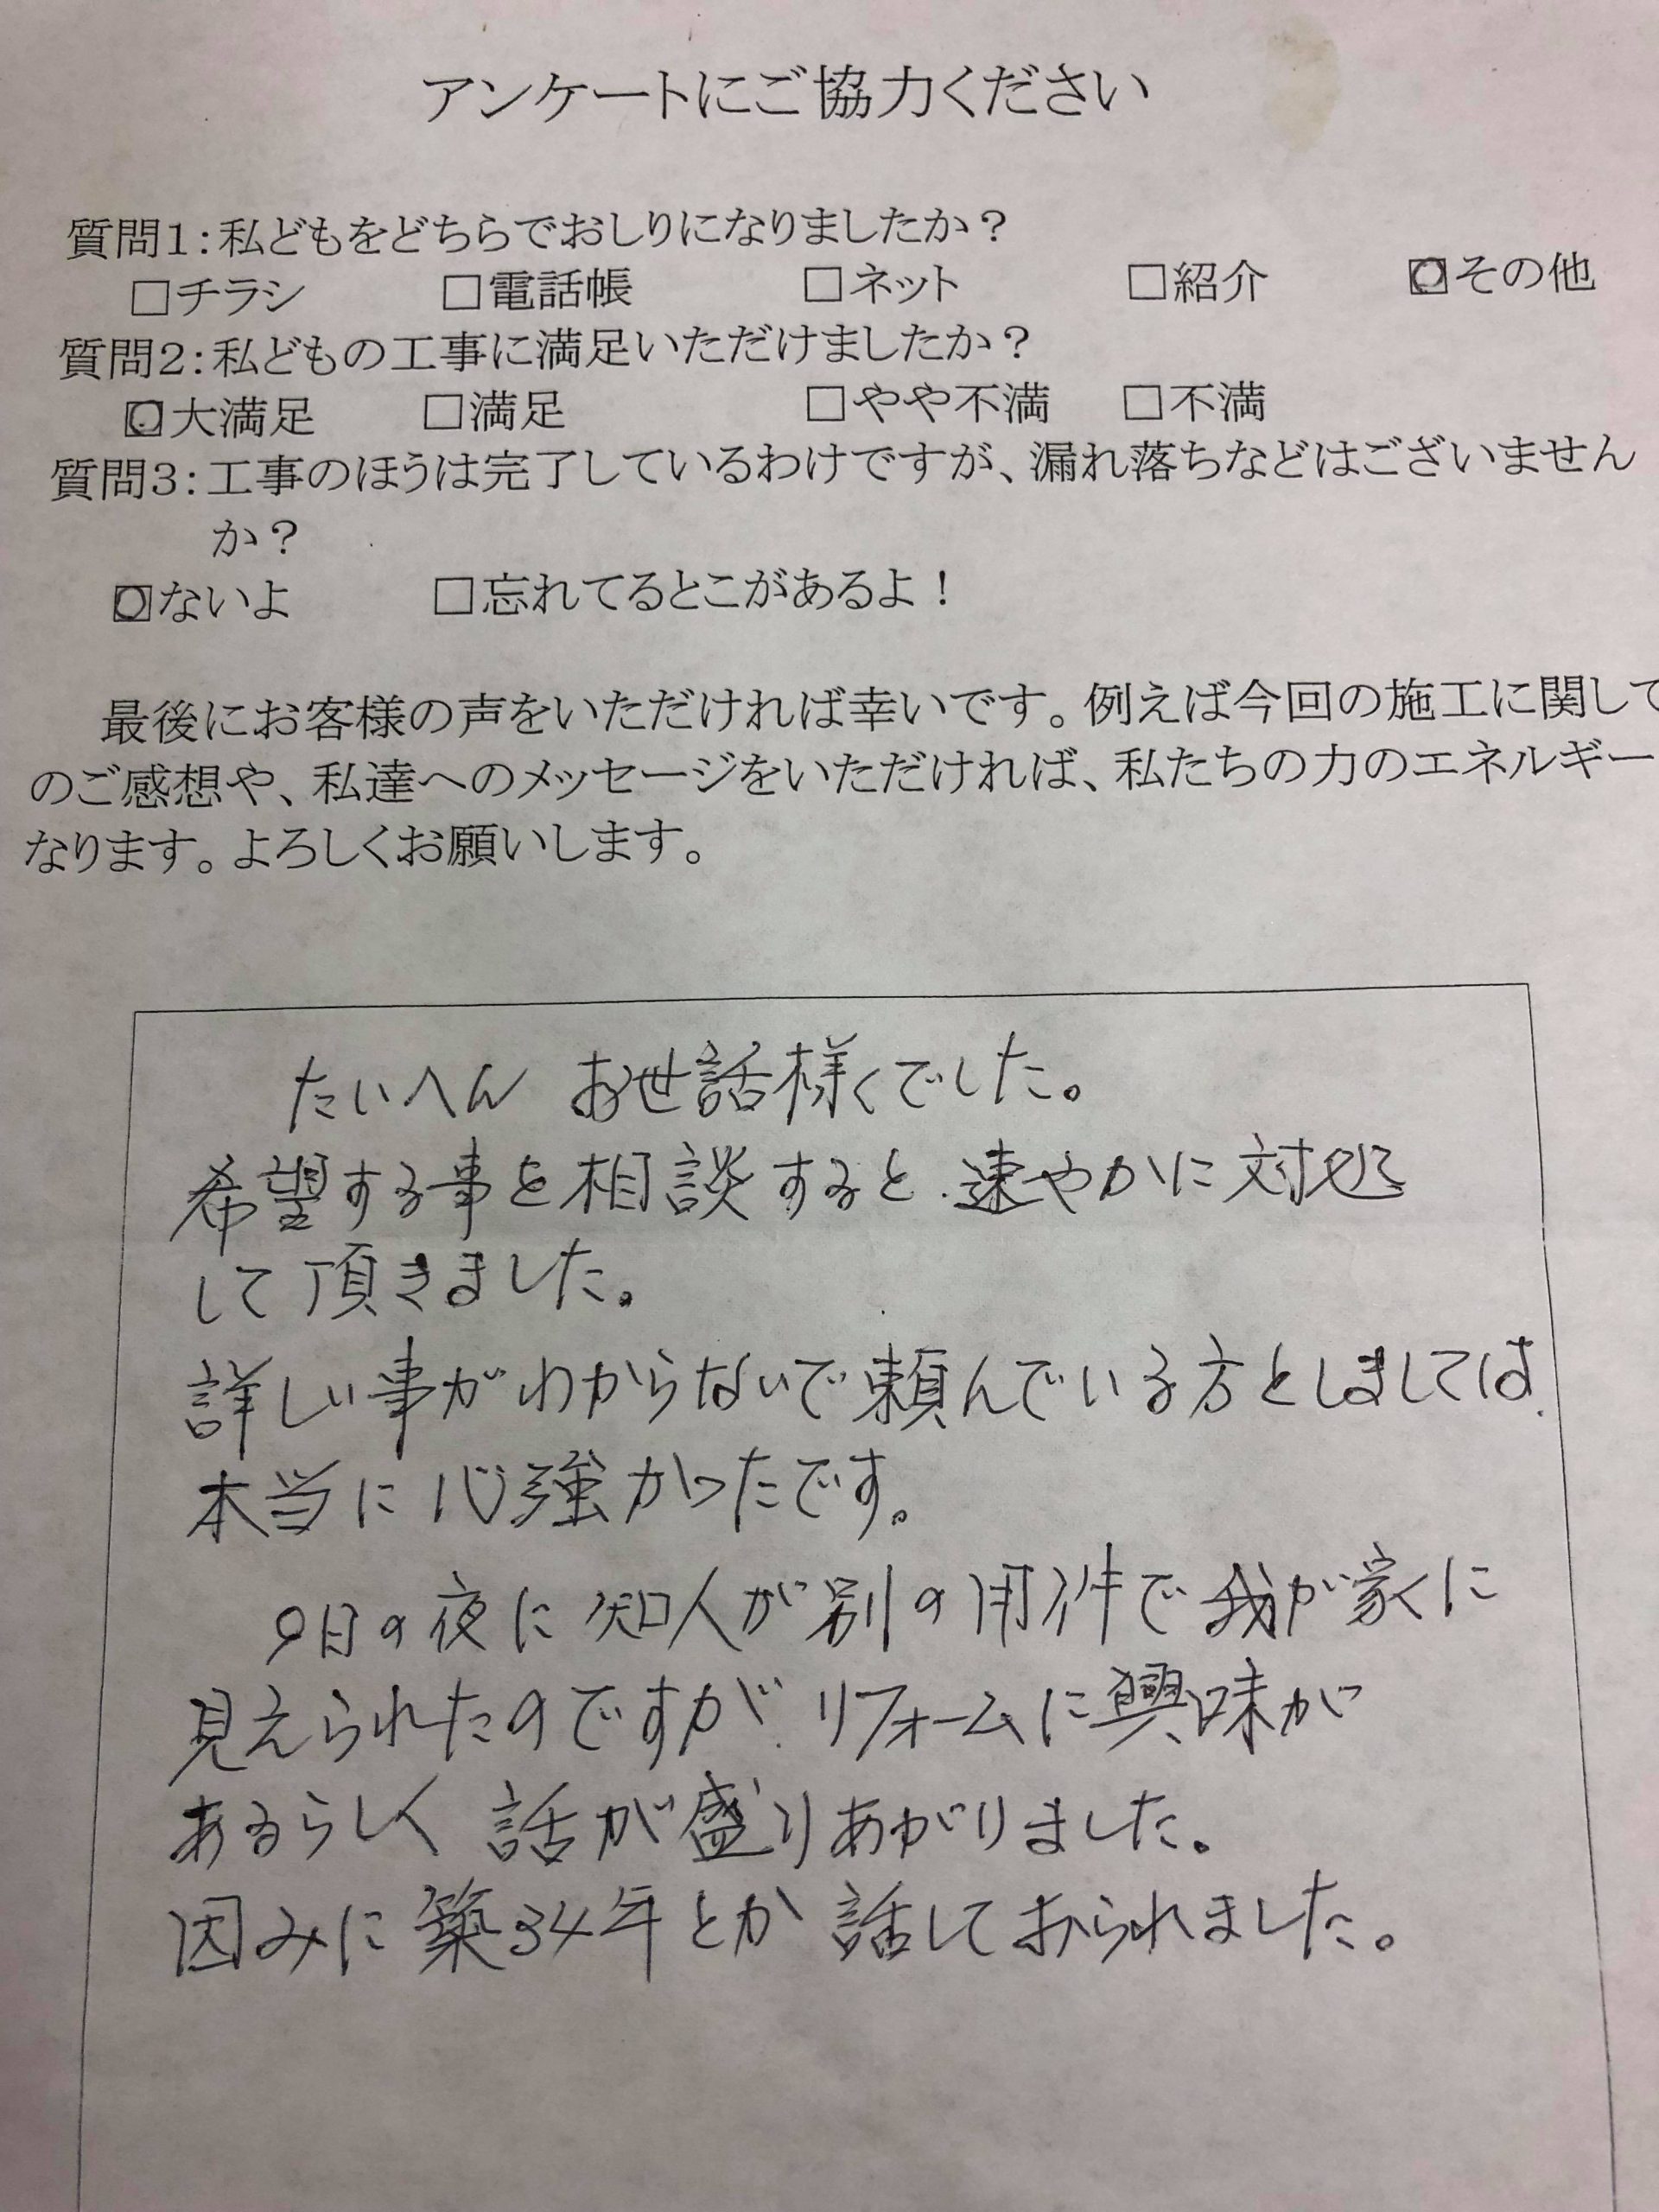 アンケートにご協力ください
質問1：私どもをどちらでおしりになりましたか？
□チラシ □電話帳 □ネット □紹介 □その他
質問2：私どもの工事に満足いただけましたか？
□大満足 □満足 □やや不満 □不満
質問3：工事のほうは完了しているわけですが、漏れ落ちなどはございません
か？
□ないよ □忘れてるとこがあるよ！
最後にお客様の声をいただければ幸いです。例えば今回の施工に関して
のご感想や、私達へのメッセージをいただければ、私たちの力のエネルギー
なります。よろしくお願いします。
たいへん お世話様でした。
希望する事を相談すると、速やかに対処
して頂きました。
詳しい事がわからないで頼んでいる方としましては、
本当に心強かったです。
9日の夜に知人が別の用件で我が家に
見えられたのですが、リフォームに興味が
あるらしく 話が盛りあがりました。
因みに築34年とか 話しておられました。